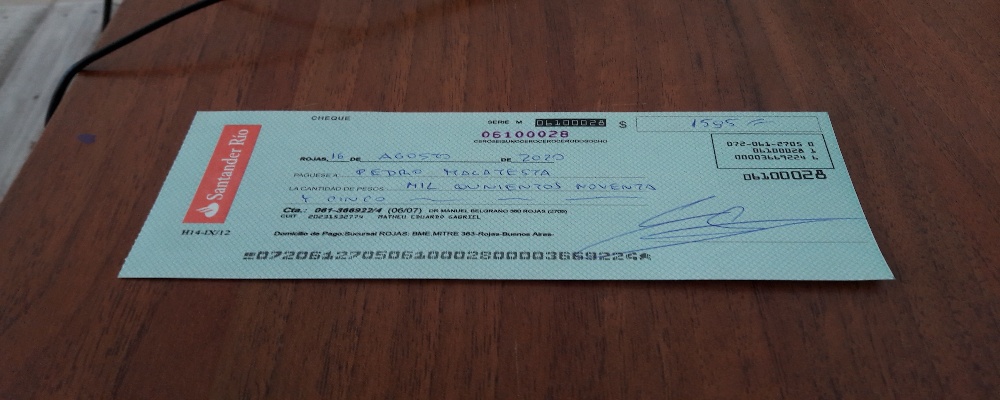 CHEQUE SERIE M 06100028 $ 1595 =
06100028
CEROSEISUNOCEROCEROCERODOSOCHO
072-061-2705 0
06100028 1
00003669224 6
06100028
Santander Río
ROJAS, 16 DE AGOSTO DE 2020
PAGUESE A PEDRO MACATESTA
LA CANTIDAD DE PESOS MIL QUINIENTOS NOVENTA
Y CINCO
Cta.: 061-366922/4 (06/07) DR MANUEL BELGRANO 360 ROJAS (2705)
CUIT MATHEU EDUARDO GABRIEL
H14-IX/12
Domicilio de Pago:Sucursal ROJAS: BME.MITRE 363-Rojas-Buenos Aires-